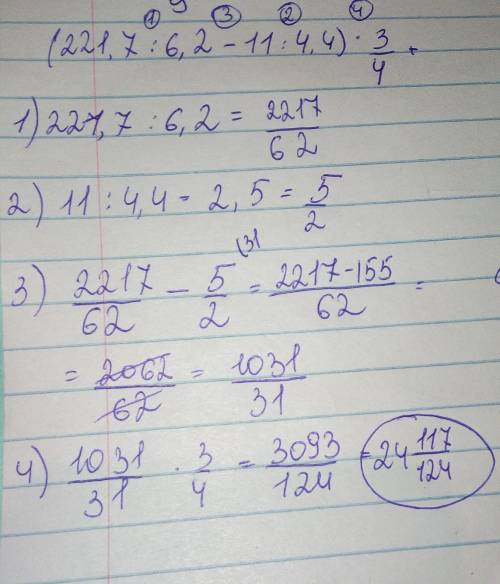 ① ③ ② ④
(221,7 : 6,2 - 11 : 4,4) · 3/4 .
1) 221,7 : 6,2 = 2217/62
2) 11 : 4,4 = 2,5 = 5/2
3) 2217/62 - 5/2 (31 = 2217-155/62 =
= 2062/62 = 1031/31
4) 1031/31 · 3/4 = 3093/124 = 24 117/124